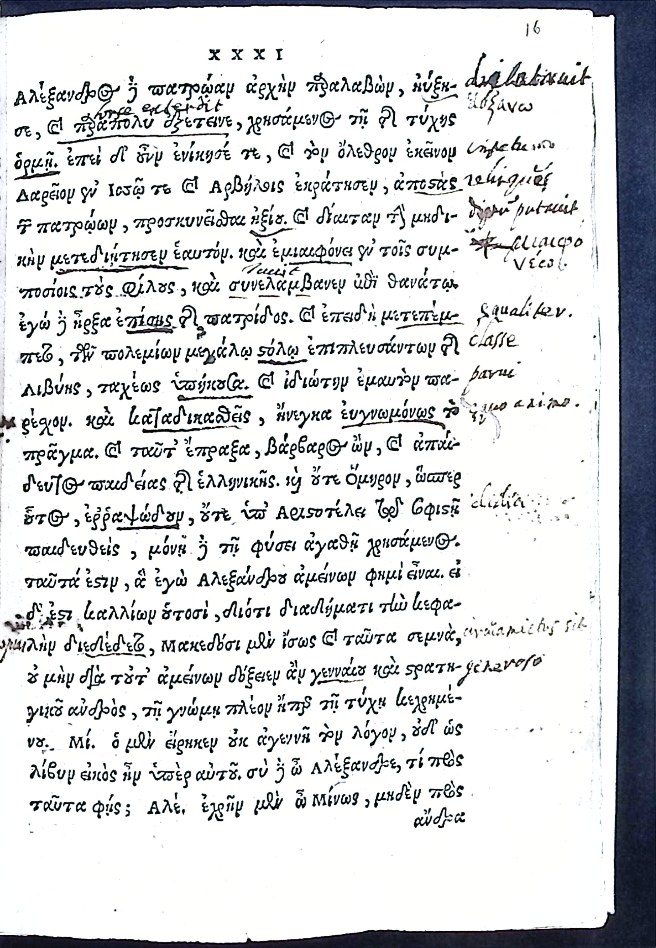 16
XXXI
Ἀλέξανδρος ἢ πατρῴαν ἀρχὴν παραλαβὼν, ηὔξη-
dilatauit
αὐξάνω
σε, καὶ παραπολὺ ἐξέτεινε, χρησάμενος τῇ τῆς τύχης
ὁρμῇ. ἐπεὶ δὲ οὖν ἐνίκησέ τε, καὶ τὸν ὄλεθρον ἐκεῖνον
Δαρεῖον ἐν Ἰσσῷ τε καὶ Ἀρβήλοις ἐκράτησεν, ἀποστὰς
τῶν πατρῴων, προσκυνεῖσθαι ἠξίου. καὶ δίαιταν τὴν μηδι-
κὴν μετεδιῄτησεν ἑαυτόν. καὶ ἐμιαιφόνει ἐν τοῖς συμ-
ποσίοις τοὺς φίλους, καὶ συνελάμβανεν ἐπὶ θανάτῳ.
ἐγὼ δὲ ἦρξα ἐπίσης τῆς πατρίδος. καὶ ἐπειδὴ μετεπέμ-
equaliter.
πετο, τῶν πολεμίων μεγάλῳ στόλῳ ἐπιπλευσάντων τῆς
classe
Λιβύης, ταχέως ὑπήκουσα. καὶ ἰδιώτην ἐμαυτὸν πα-
parui
ρέσχον. καὶ καταδικασθεὶς, ἤνεγκα εὐγνωμόνως τὸ
πρᾶγμα. καὶ ταῦτ' ἔπραξα, βάρβαρος ὢν, καὶ ἀπαί-
δευτος παιδείας τῆς ἑλληνικῆς. καὶ οὔτε Ὅμηρον, ὥσπερ
οὗτος, ἐρραψῴδουν, οὔτε ὑπ' Ἀριστοτέλει τῷ σοφιστῇ
παιδευθεὶς, μόνῃ δὲ τῇ φύσει ἀγαθῇ χρησάμενος.
ταῦτά ἐστιν, ἃ ἐγὼ Ἀλεξάνδρου ἀμείνων φημὶ εἶναι. εἰ
δέ ἐστι καλλίων οὑτοσὶ, διότι διαδήματι τὴν κεφα-
λὴν διεδέδετο, Μακεδόσι μὲν ἴσως καὶ ταῦτα σεμνὰ,
οὐ μὴν διὰ τοῦτ' ἀμείνων δόξειεν ἂν γενναίου καὶ στρατη-
generoso
γικοῦ ἀνδρὸς, τῇ γνώμῃ πλέον ἤπερ τῇ τύχῃ κεχρημέ-
νου. Μί. ὁ μὲν εἴρηκεν οὐκ ἀγεννῆ τὸν λόγον, οὐδὲ ὡς
λίβυν εἰκὸς ἦν ὑπὲρ αὐτοῦ. σὺ δὲ ὦ Ἀλέξανδρε, τί πρὸς
ταῦτα φῄς; Ἀλέ. ἐχρῆν μὲν ὦ Μίνως, μηδὲν πρὸς
ἄνδρα